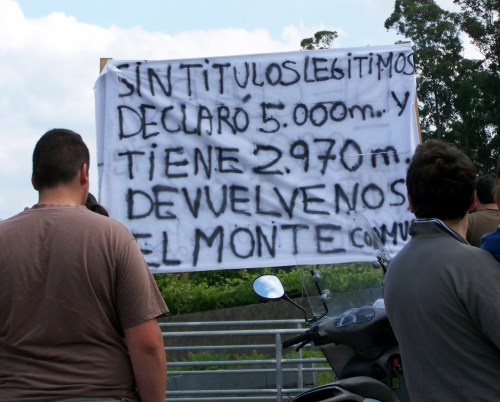 SIN TITULOS LEGITIMOS
DECLARÓ 5.000m. Y
TIENE 2.970 m.
DEVUELVENOS
EL MONTE COMU